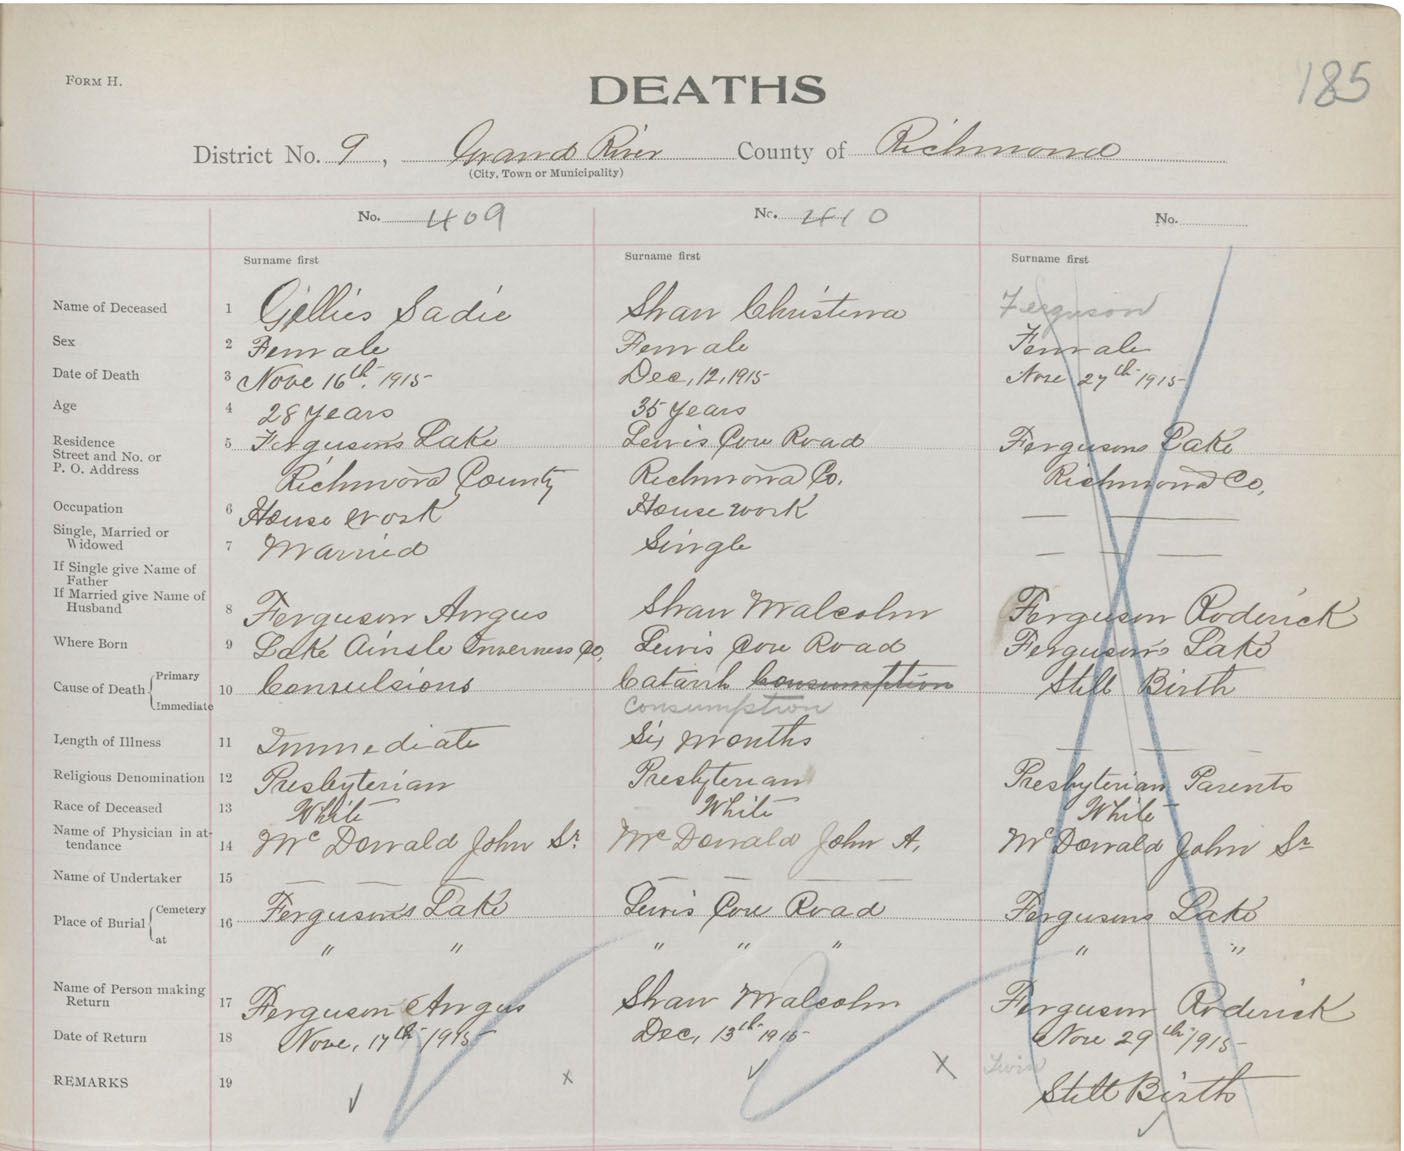 185
FORM H.
DEATHS
District No. 9, Grand River County of Richmond
(City, Town or Municipality)
No. 409 No. 410 No.
Surname first Surname first Surname first
Name of Deceased 1 Gillies Sadie Shaw Christena Ferguson
Sex 2 Female Female Female
Date of Death 3 Nove 16th. 1915 Dec, 12, 1915 Nove 27th 1915
Age 4 28 years 35 years
Residence 5 Fergusons Lake Lewis Cove Road Fergusons Lake
Street and No. or
P. O. Address Richmond County Richmond Co. Richmond Co,
Occupation 6 House work House work — —
Single, Married or
Widowed 7 Married Single — — —
If Single give Name of
Father
If Married give Name of
Husband 8 Ferguson Angus Shaw Malcolm Ferguson Roderick
Where Born 9 Lake Ainsle Inverness Co, Lewis Cove Road Ferguson's Lake
Cause of Death Primary 10 Convulsions Catarrh Consumption Still Birth
Immediate consumption
Length of Illness 11 Immediate Six Months — — —
Religious Denomination 12 Presbyterian Presbyterian Presbyterian Parents
Race of Deceased 13 White White White
Name of Physician in at-
tendance 14 McDonald John Sr. McDonald John A. McDonald John Sr
Name of Undertaker 15 — — — — — —
Place of Burial Cemetery 16 Ferguson's Lake Lewis Cove Road Fergusons Lake
at " " " " " " "
Name of Person making
Return 17 Ferguson Angus Shaw Malcolm Ferguson Roderick
Date of Return 18 Nove, 17th 1915 Dec, 13th 1915 Nove 29th 1915
Twin
REMARKS 19 Still Birth